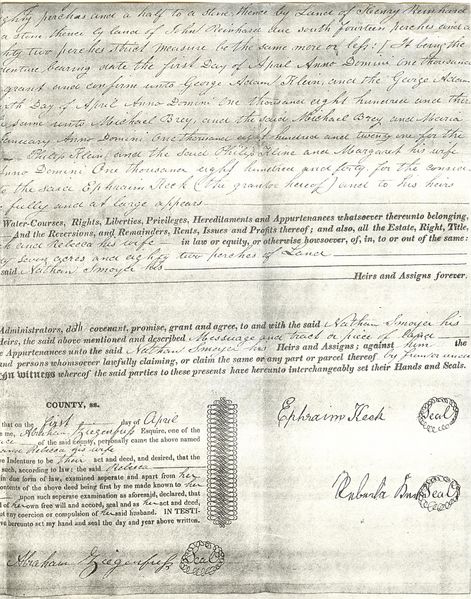 ghty perches and a half to a stone thence by Land of Henry Reinhard
a stone thence by land of John Reinhard due south fourteen perches and a
ghty two perches strict measure be the same more or less: (It being the
enture bearing date the first Day of April Anno Domini One thousand
grant and confirm unto George Adam Klein, and the George Adam
th Day of April Anno Domini One thousand eight hundred and three
same unto Michael Brey, and the said Michael Brey and Maria
Anno Domini One thousand eight hundred and twenty one for the
Philip Klein, and the said Philip Kline and Margaret his wife
Anno Domini One thousand eight hundred and forty, for the consid
to the said Ephraim Heck (the grantor hereof) and to his heirs
fully and at large appears.
Water-Courses, Rights, Liberties, Privileges, Hereditaments and Appurtenances whatsoever thereunto belonging,
And the Reversions, and Remainders, Rents, Issues and Profits thereof; and also, all the Estate, Right, Title,
and Rebecca his wife in law or equity, or otherwise howsoever, of, in, to or out of the same:
seven acres and eighty two perches of Land
said Nathan Smoyer his
Heirs and Assigns forever.
Administrators, do covenant, promise, grant and agree, to and with the said Nathan Smoyer his
Heirs, the above mentioned and described Messuage and tract or piece of Land
e Appurtenances unto the said Nathan Smoyer his Heirs and Assigns; against him the
and persons whomsoever lawfully claiming, or claim the same or any part or parcel thereof by from or under
on witness whereof the said parties to these presents have hereunto interchangeably set their Hands and Seals.
COUNTY, ss.
that on the first day of April
me, Abraham Ziegenfuss Esquire, one of the
of the said county, personally came the above named
Rebecca his wife
e Indenture to be their act and deed, and desired, that the
such, according to law; the said Rebecca
in due form of law, examined seperate and apart from her
ontents of the above deed being first by me made known to her
upon such seperate examination as aforesaid, declared, that
of her own free will and accord, seal and as her act and deed,
ut any coercion or compulsion of her said husband. IN TESTI-
ve hereunto set my hand and seal the day and year above written.
Ephraim Heck Seal
Seal
Abraham Ziegenfuss Seal